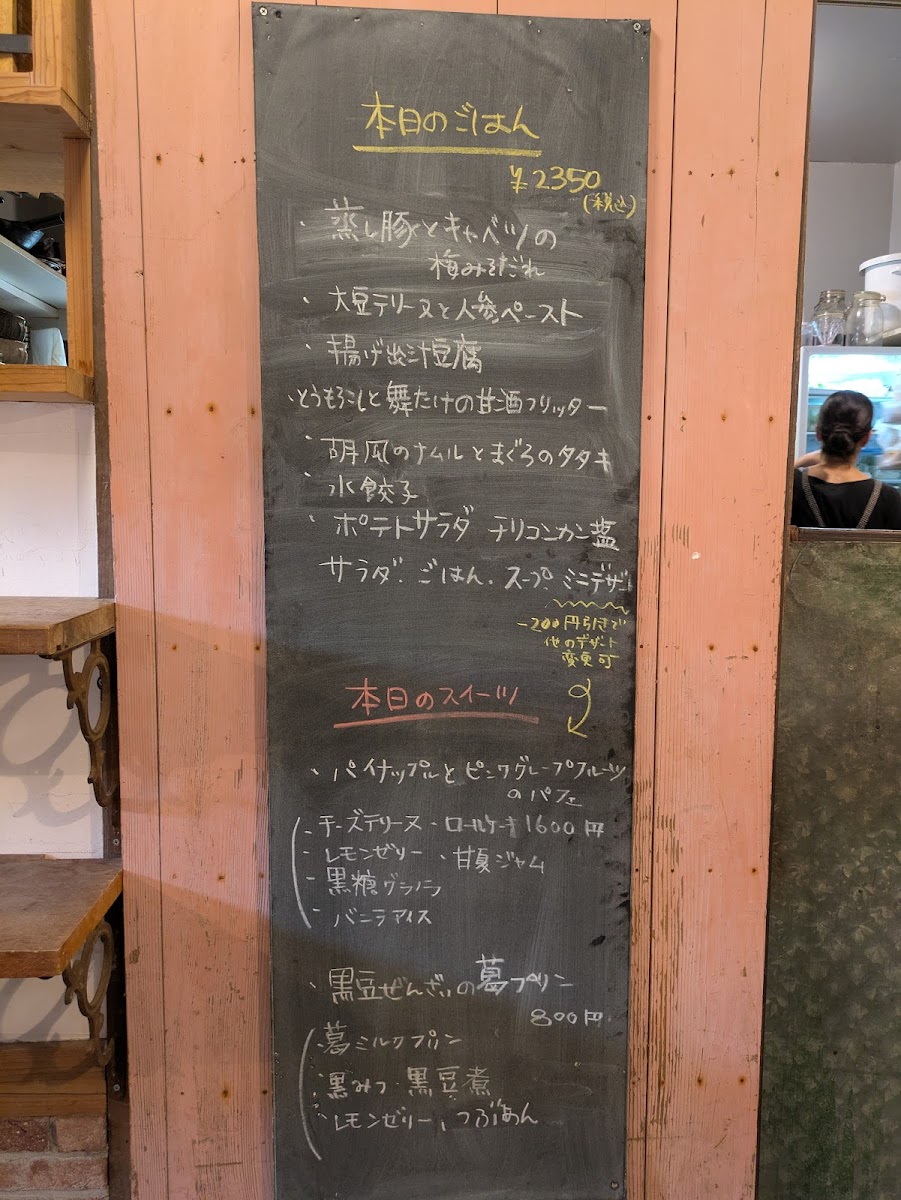 本日のごはん
¥2350
(税込)
・蒸し豚とキャベツの
梅みそだれ
・大豆テリーヌと人参ペースト
・揚げ出汁豆腐
・とうもろこしと舞たけの甘酒フリッター
・胡瓜のナムルとまぐろのタタキ
・水餃子
・ポテトサラダ チリコンカン塩
サラダ、ごはん、スープ ミニデザート
-200円引きで
他のデザート
変更可
本日のスイーツ
・パイナップルとピンクグレープフルーツ
のパフェ
・チーズテリーヌ ・ロールケーキ 1600円
・レモンゼリー ・甘夏ジャム
・黒糖グラノラ
・バニラアイス
・黒豆ぜんざいの葛プリン
800円
・葛ミルクプリン
・黒みつ・黒豆煮
・レモンゼリー、つぶあん